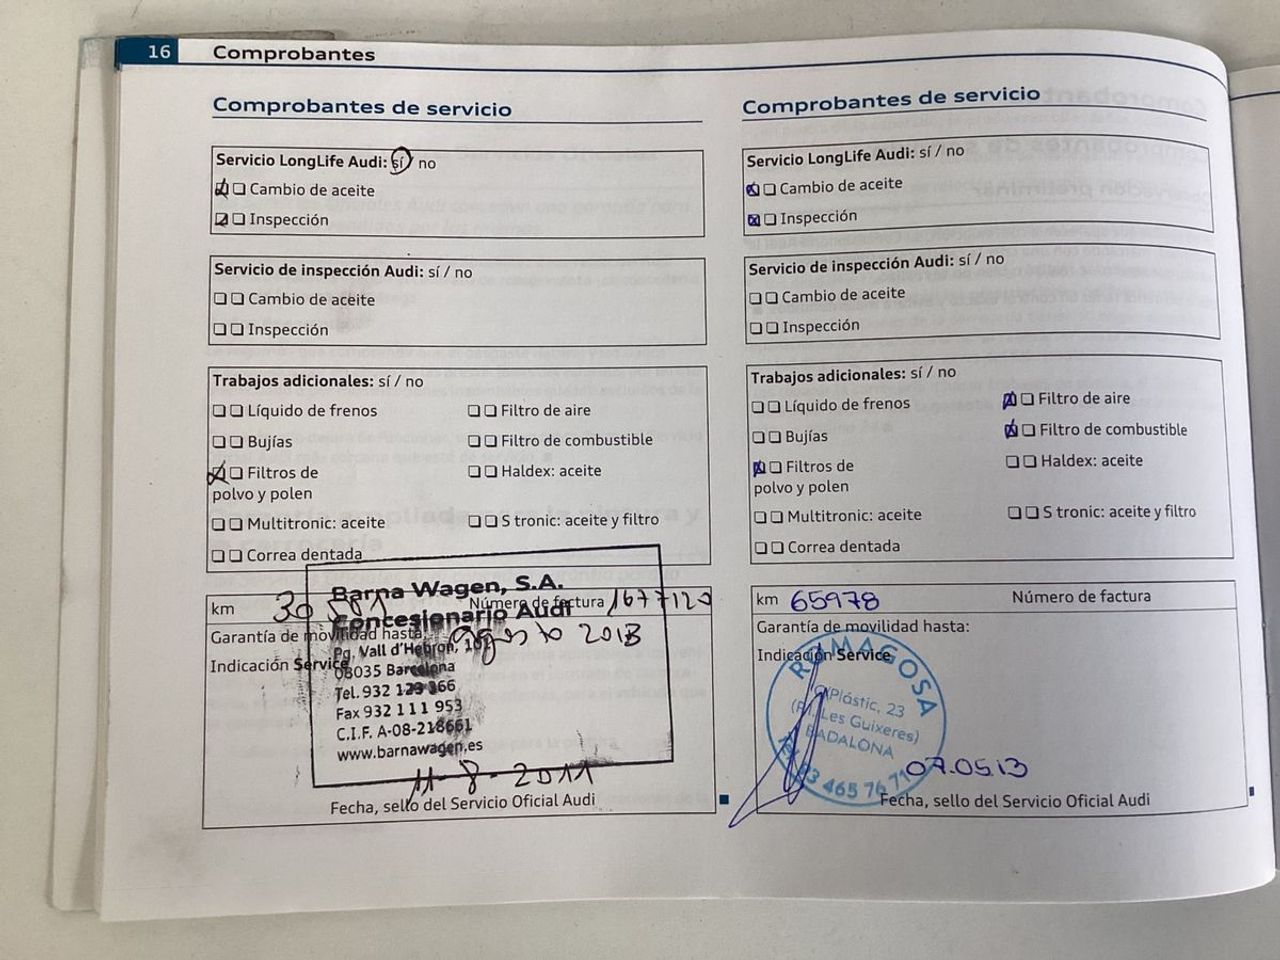 16 Comprobantes
Comprobantes de servicio
Servicio LongLife Audi: sí / no
Cambio de aceite
Inspección
Servicio de inspección Audi: sí / no
Cambio de aceite
Inspección
Trabajos adicionales: sí / no
Líquido de frenos
Filtro de aire
Bujías
Filtro de combustible
Filtros de
polvo y polen
Haldex: aceite
Multitronic: aceite
S tronic: aceite y filtro
Correa dentada
km 30 501
Número de factura 1677120
Garantía de movilidad hasta: agosto 2013
Indicación Service
Barna Wagen, S.A.
Concesionario Audi
Pg. Vall d'Hebron,
08035 Barcelona
Tel. 932 123 366
Fax 932 111 953
C.I.F. A-08-218661
www.barnawagen.es
11-8-2011
Fecha, sello del Servicio Oficial Audi
Comprobantes de servicio
Servicio LongLife Audi: sí / no
Cambio de aceite
Inspección
Servicio de inspección Audi: sí / no
Cambio de aceite
Inspección
Trabajos adicionales: sí / no
Líquido de frenos
Filtro de aire
Bujías
Filtro de combustible
Filtros de
polvo y polen
Haldex: aceite
Multitronic: aceite
S tronic: aceite y filtro
Correa dentada
km 65978
Número de factura
Garantía de movilidad hasta:
Indicación Service
ROMAGOSA
C/Plástic, 23
(P.I. Les Guixeres)
BADALONA
Tel. 93 465 76 71
07.05.13
Fecha, sello del Servicio Oficial Audi